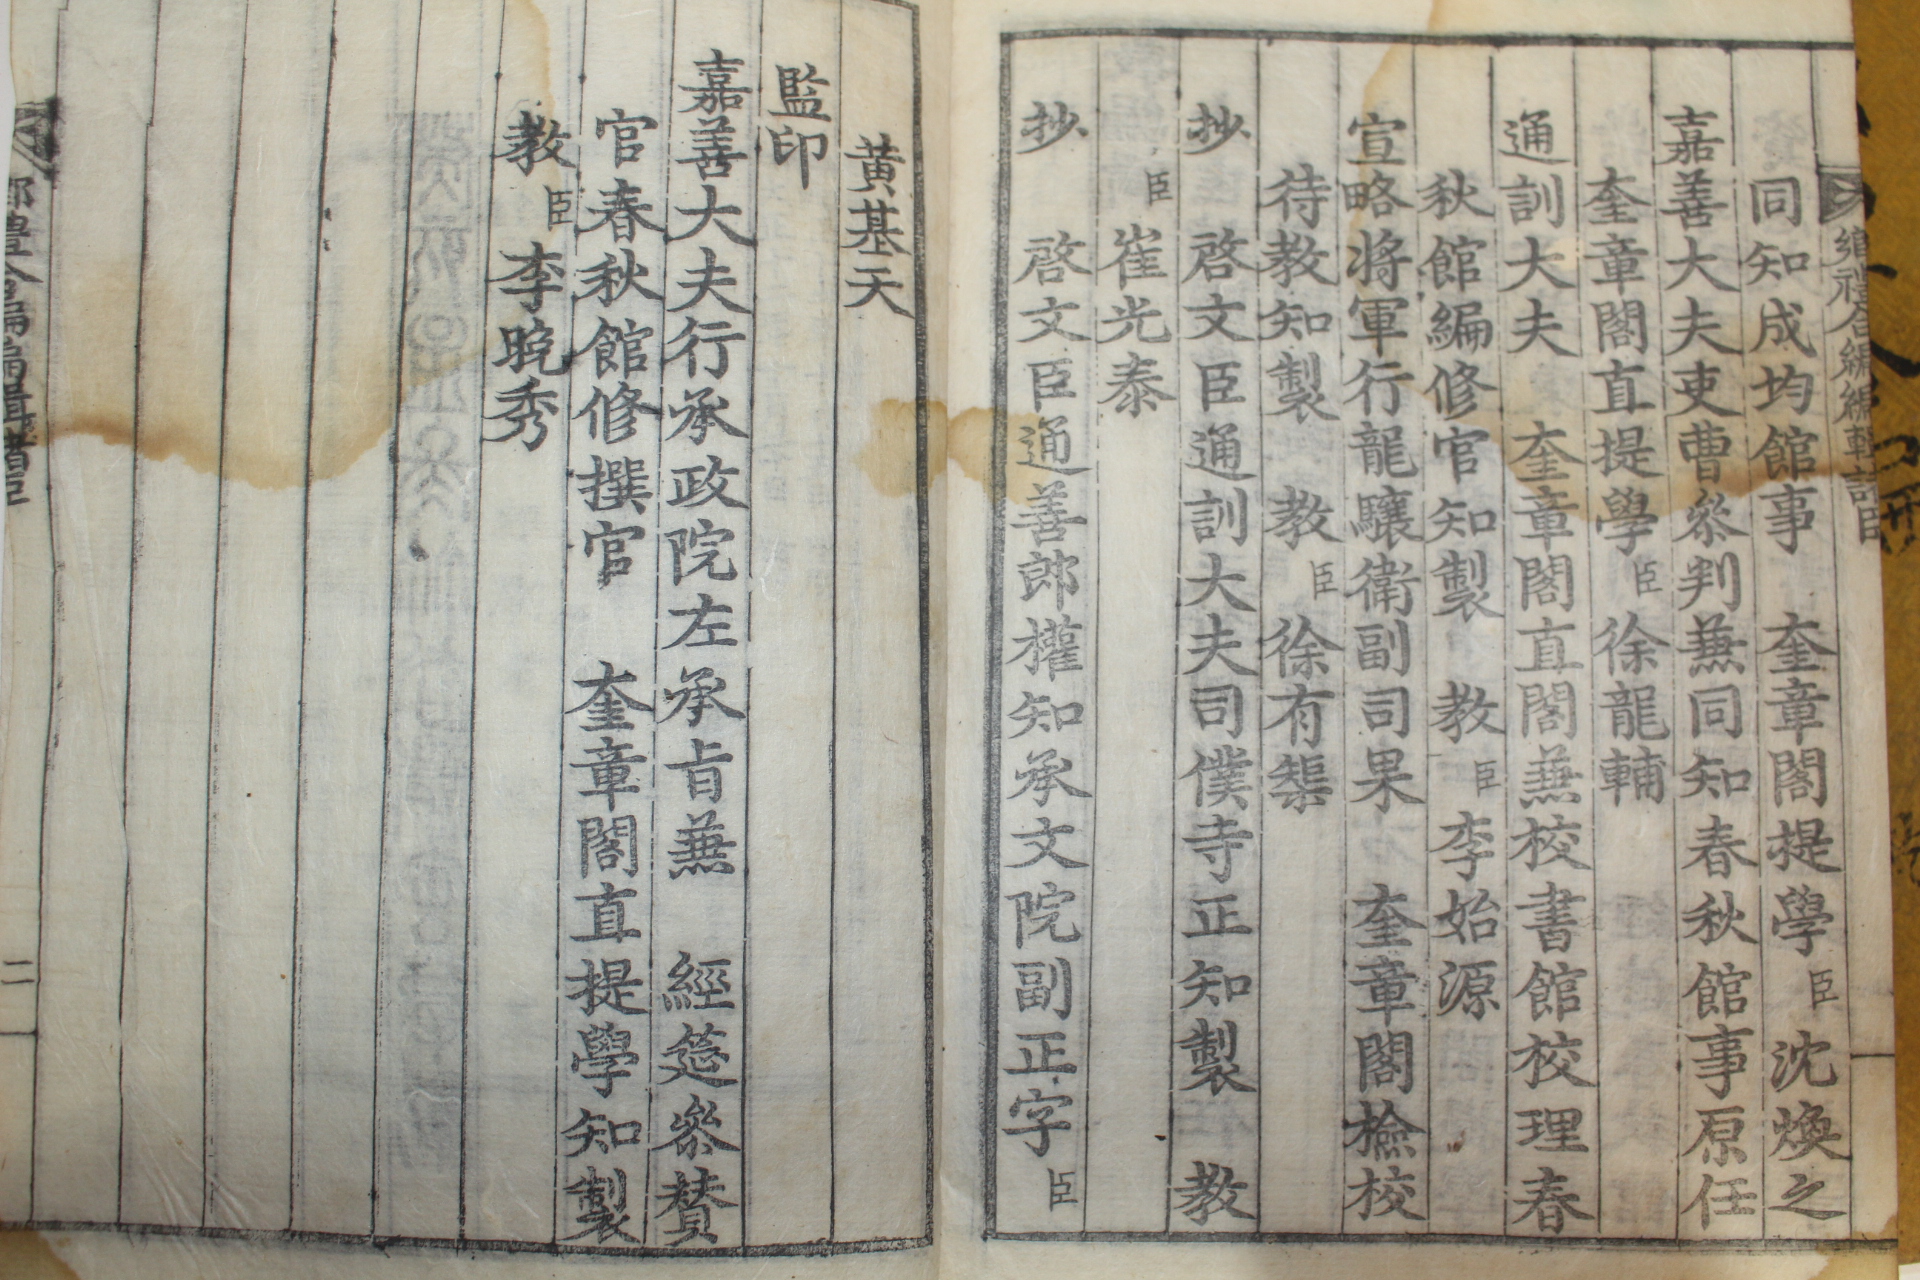 鄕禮合編編輯諸臣
同知成均館事 奎章閣提學臣沈煥之
嘉善大夫吏曹叅判兼同知春秋館事原任
奎章閣直提學臣徐龍輔
通訓大夫 奎章閣直閣兼校書館校理春
秋館編修官知製 教臣李始源
宣略將軍行龍驤衛副司果 奎章閣檢校
待教知製 教臣徐有榘
抄 啓文臣通訓大夫司僕寺正知製 教
臣崔光泰
抄 啓文臣通善郎權知承文院副正字臣
黃基天
監印
嘉善大夫行承政院左承旨兼 經筵叅贊
官春秋館修撰官 奎章閣直提學知製
教臣李晚秀
鄕禮合編編輯諸臣
二